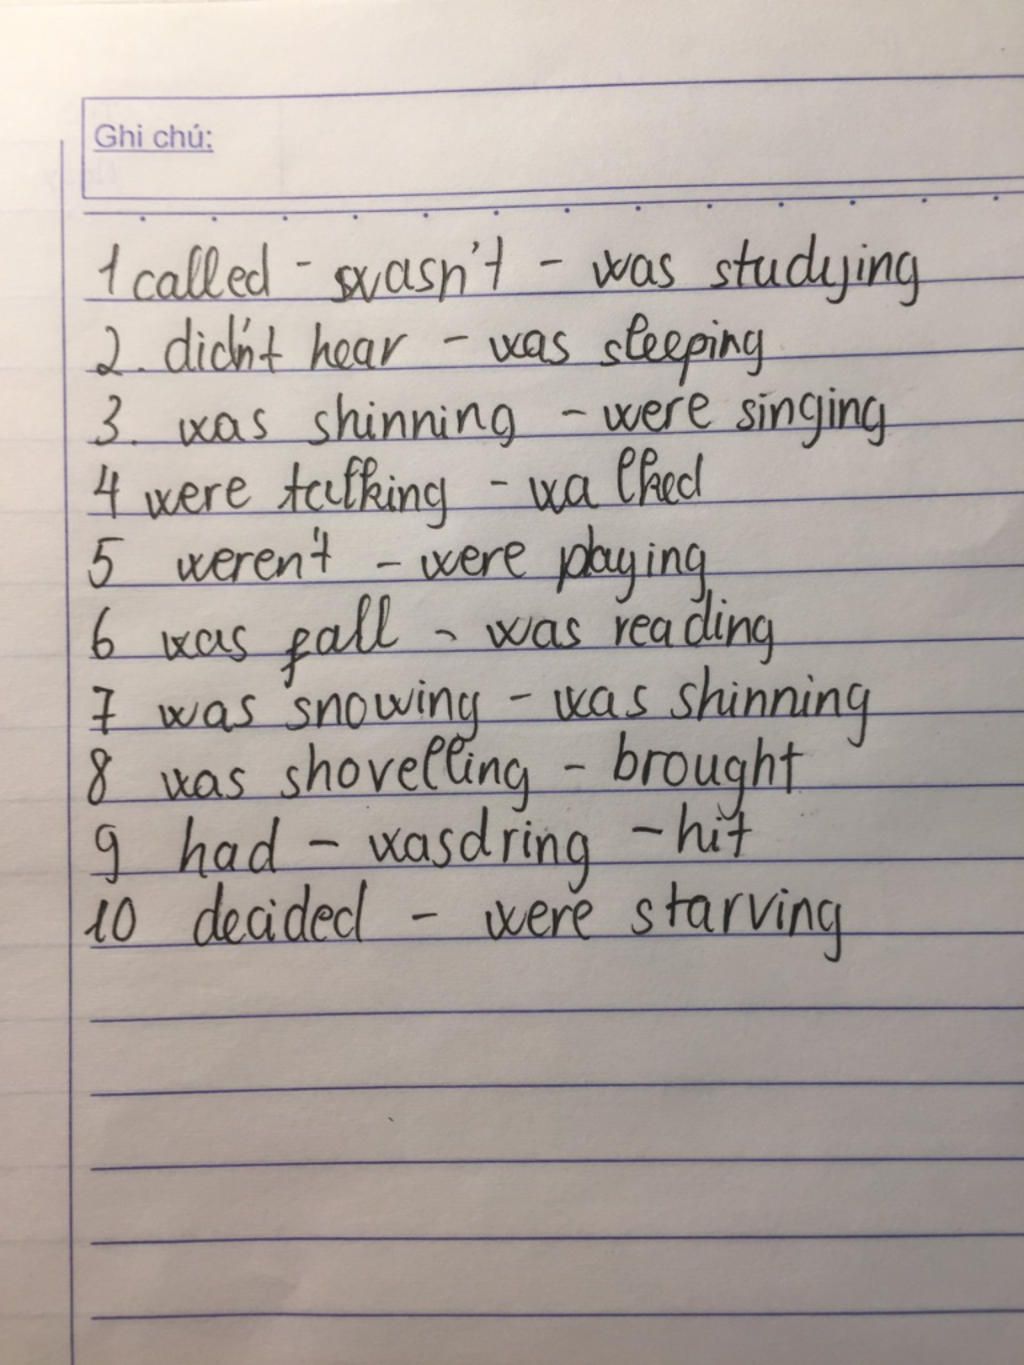 Ghi chú:
1 called - wasn't - was studying
2. didn't hear - was sleeping
3. was shinning - were singing
4 were talking - walked
5 weren't - were playing
6 was fall - was reading
7 was snowing - was shinning
8 was shovelling - brought
9 had - wasdring - hit
10 decided - were starving